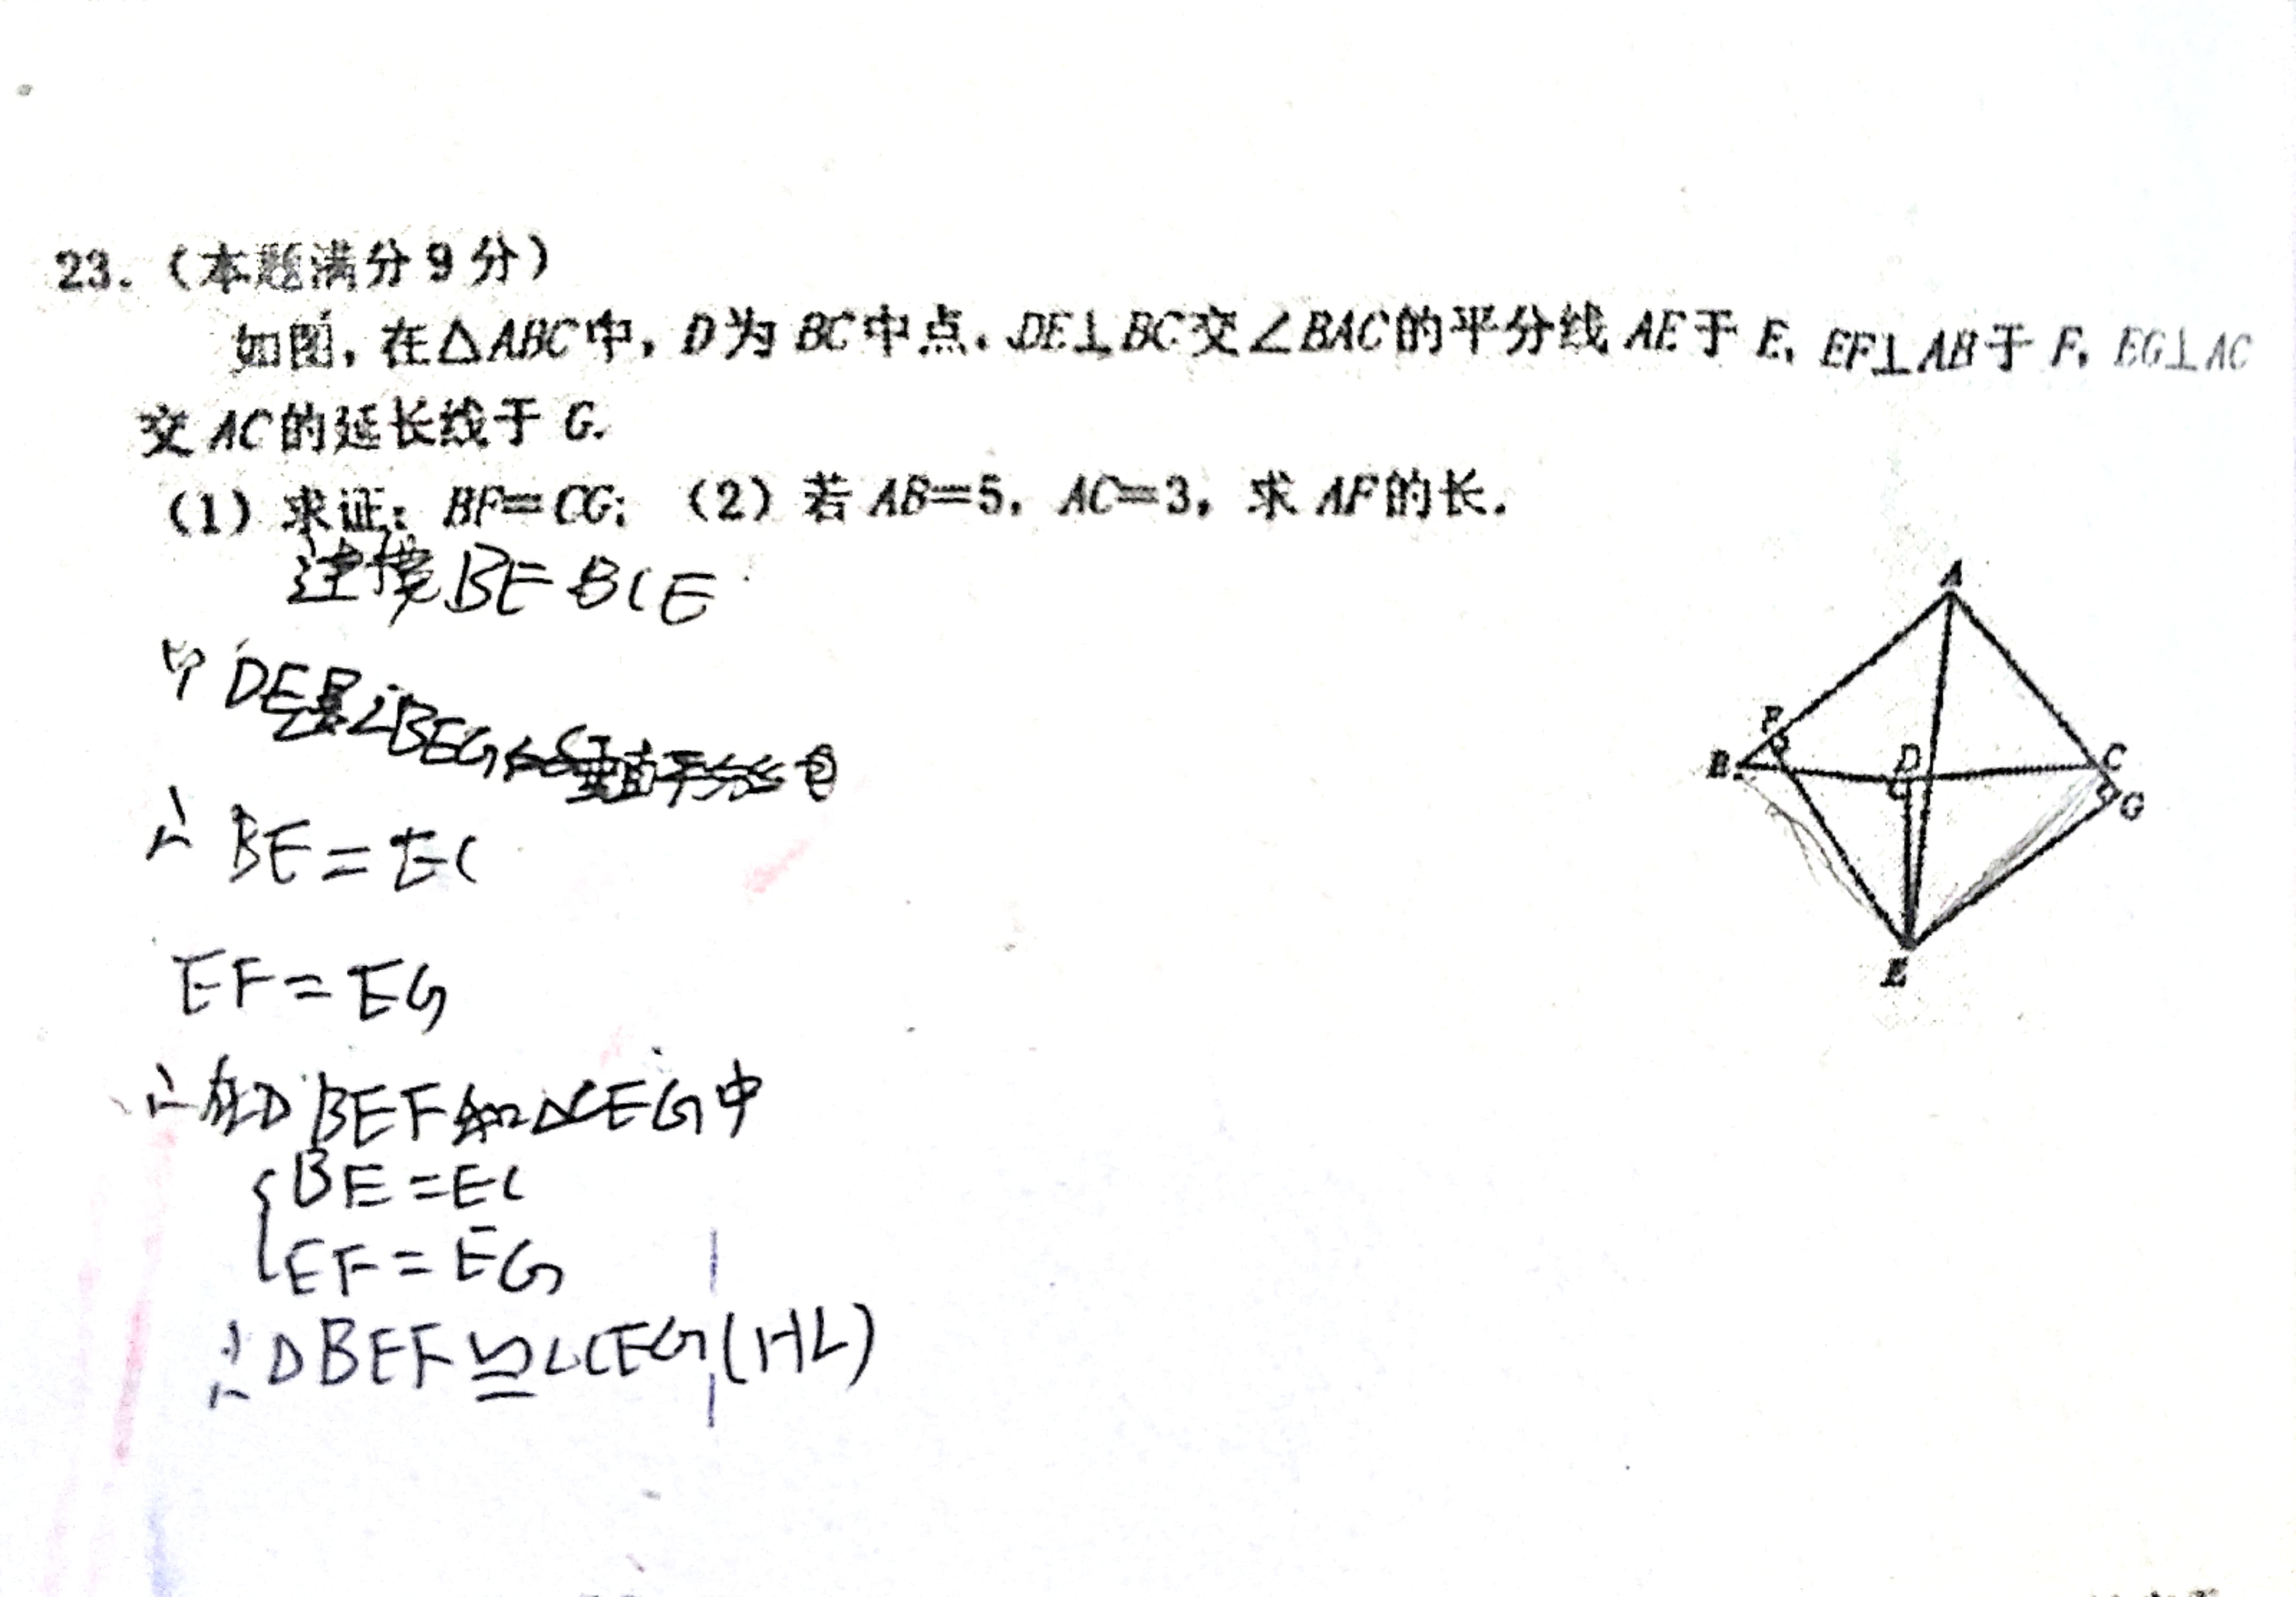 23.（本题满分9分）
如图，在△ABC中，D为BC中点，DE⊥BC交∠BAC的平分线AE于E，EF⊥AB于F，EG⊥AC
交AC的延长线于G.
（1）求证：BF=CG；（2）若AB=5，AC=3，求AF的长.
连接BE CE
DE是∠BEG 垂直平分线
∴BE=EC
EF=EG
∴在△BEF和△CEG中
{BE=EC
EF=EG
∴△BEF≌△CEG(HL)
A
F
B
D
C
G
E